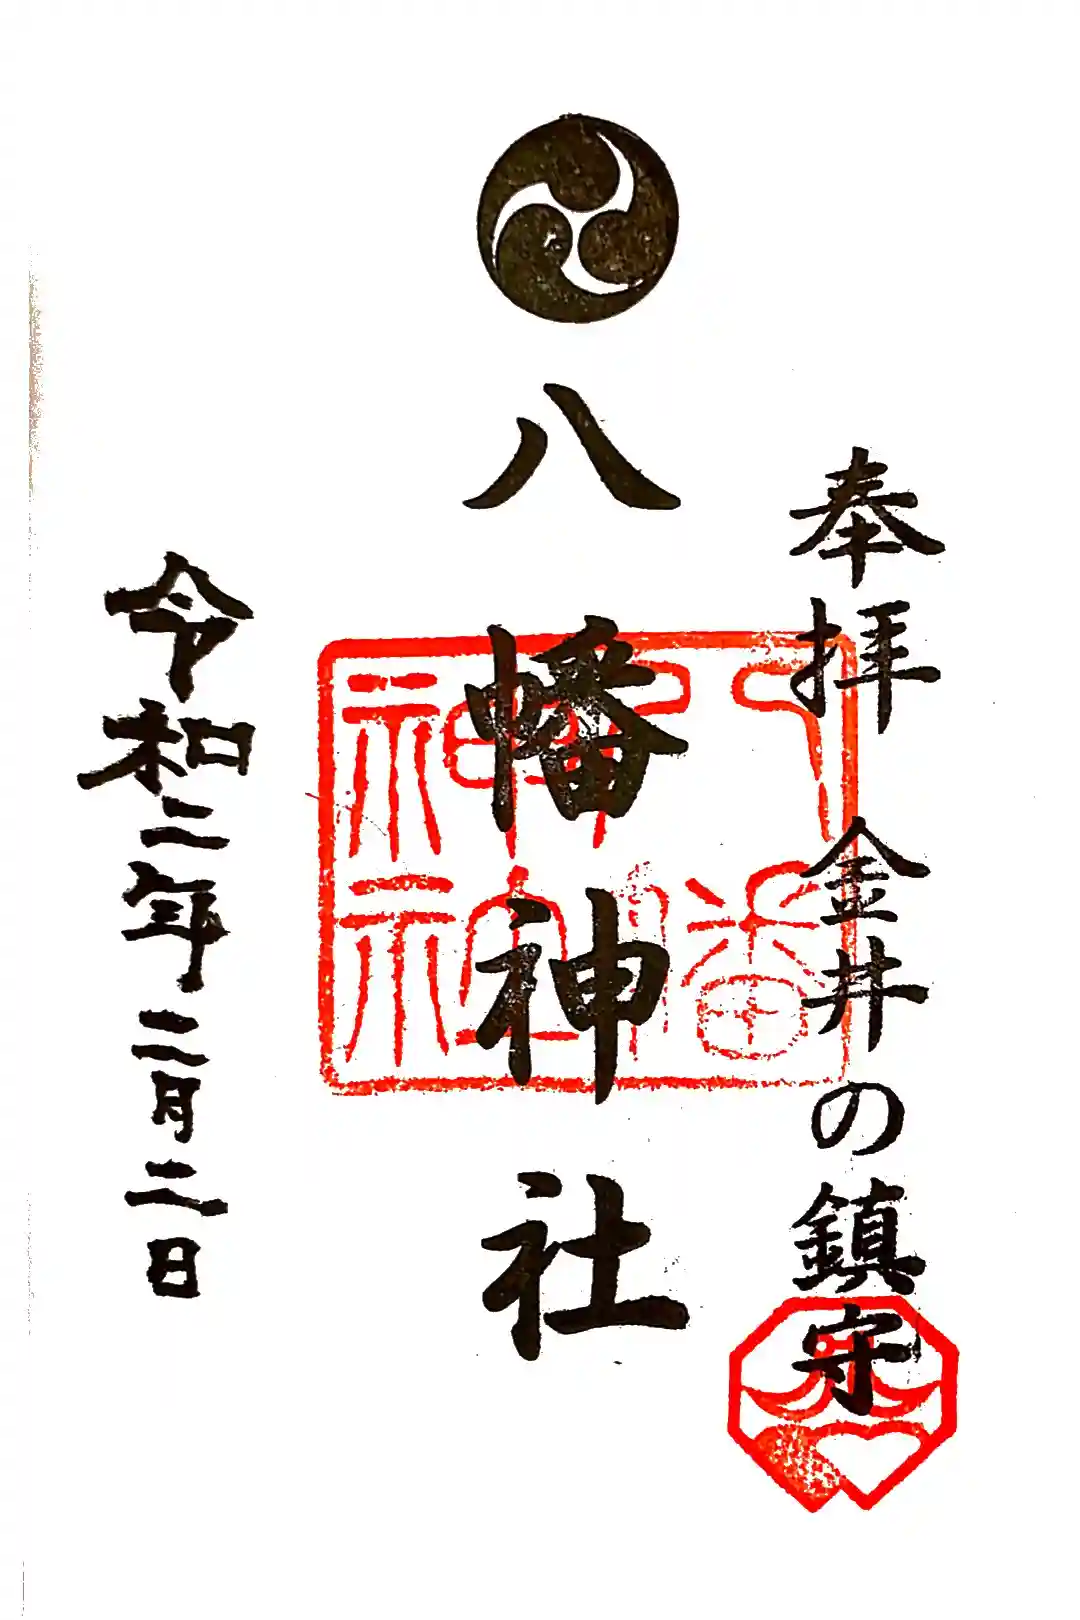 奉拝 金井の鎮守
八幡神社
八幡神社
令和二年二月二日